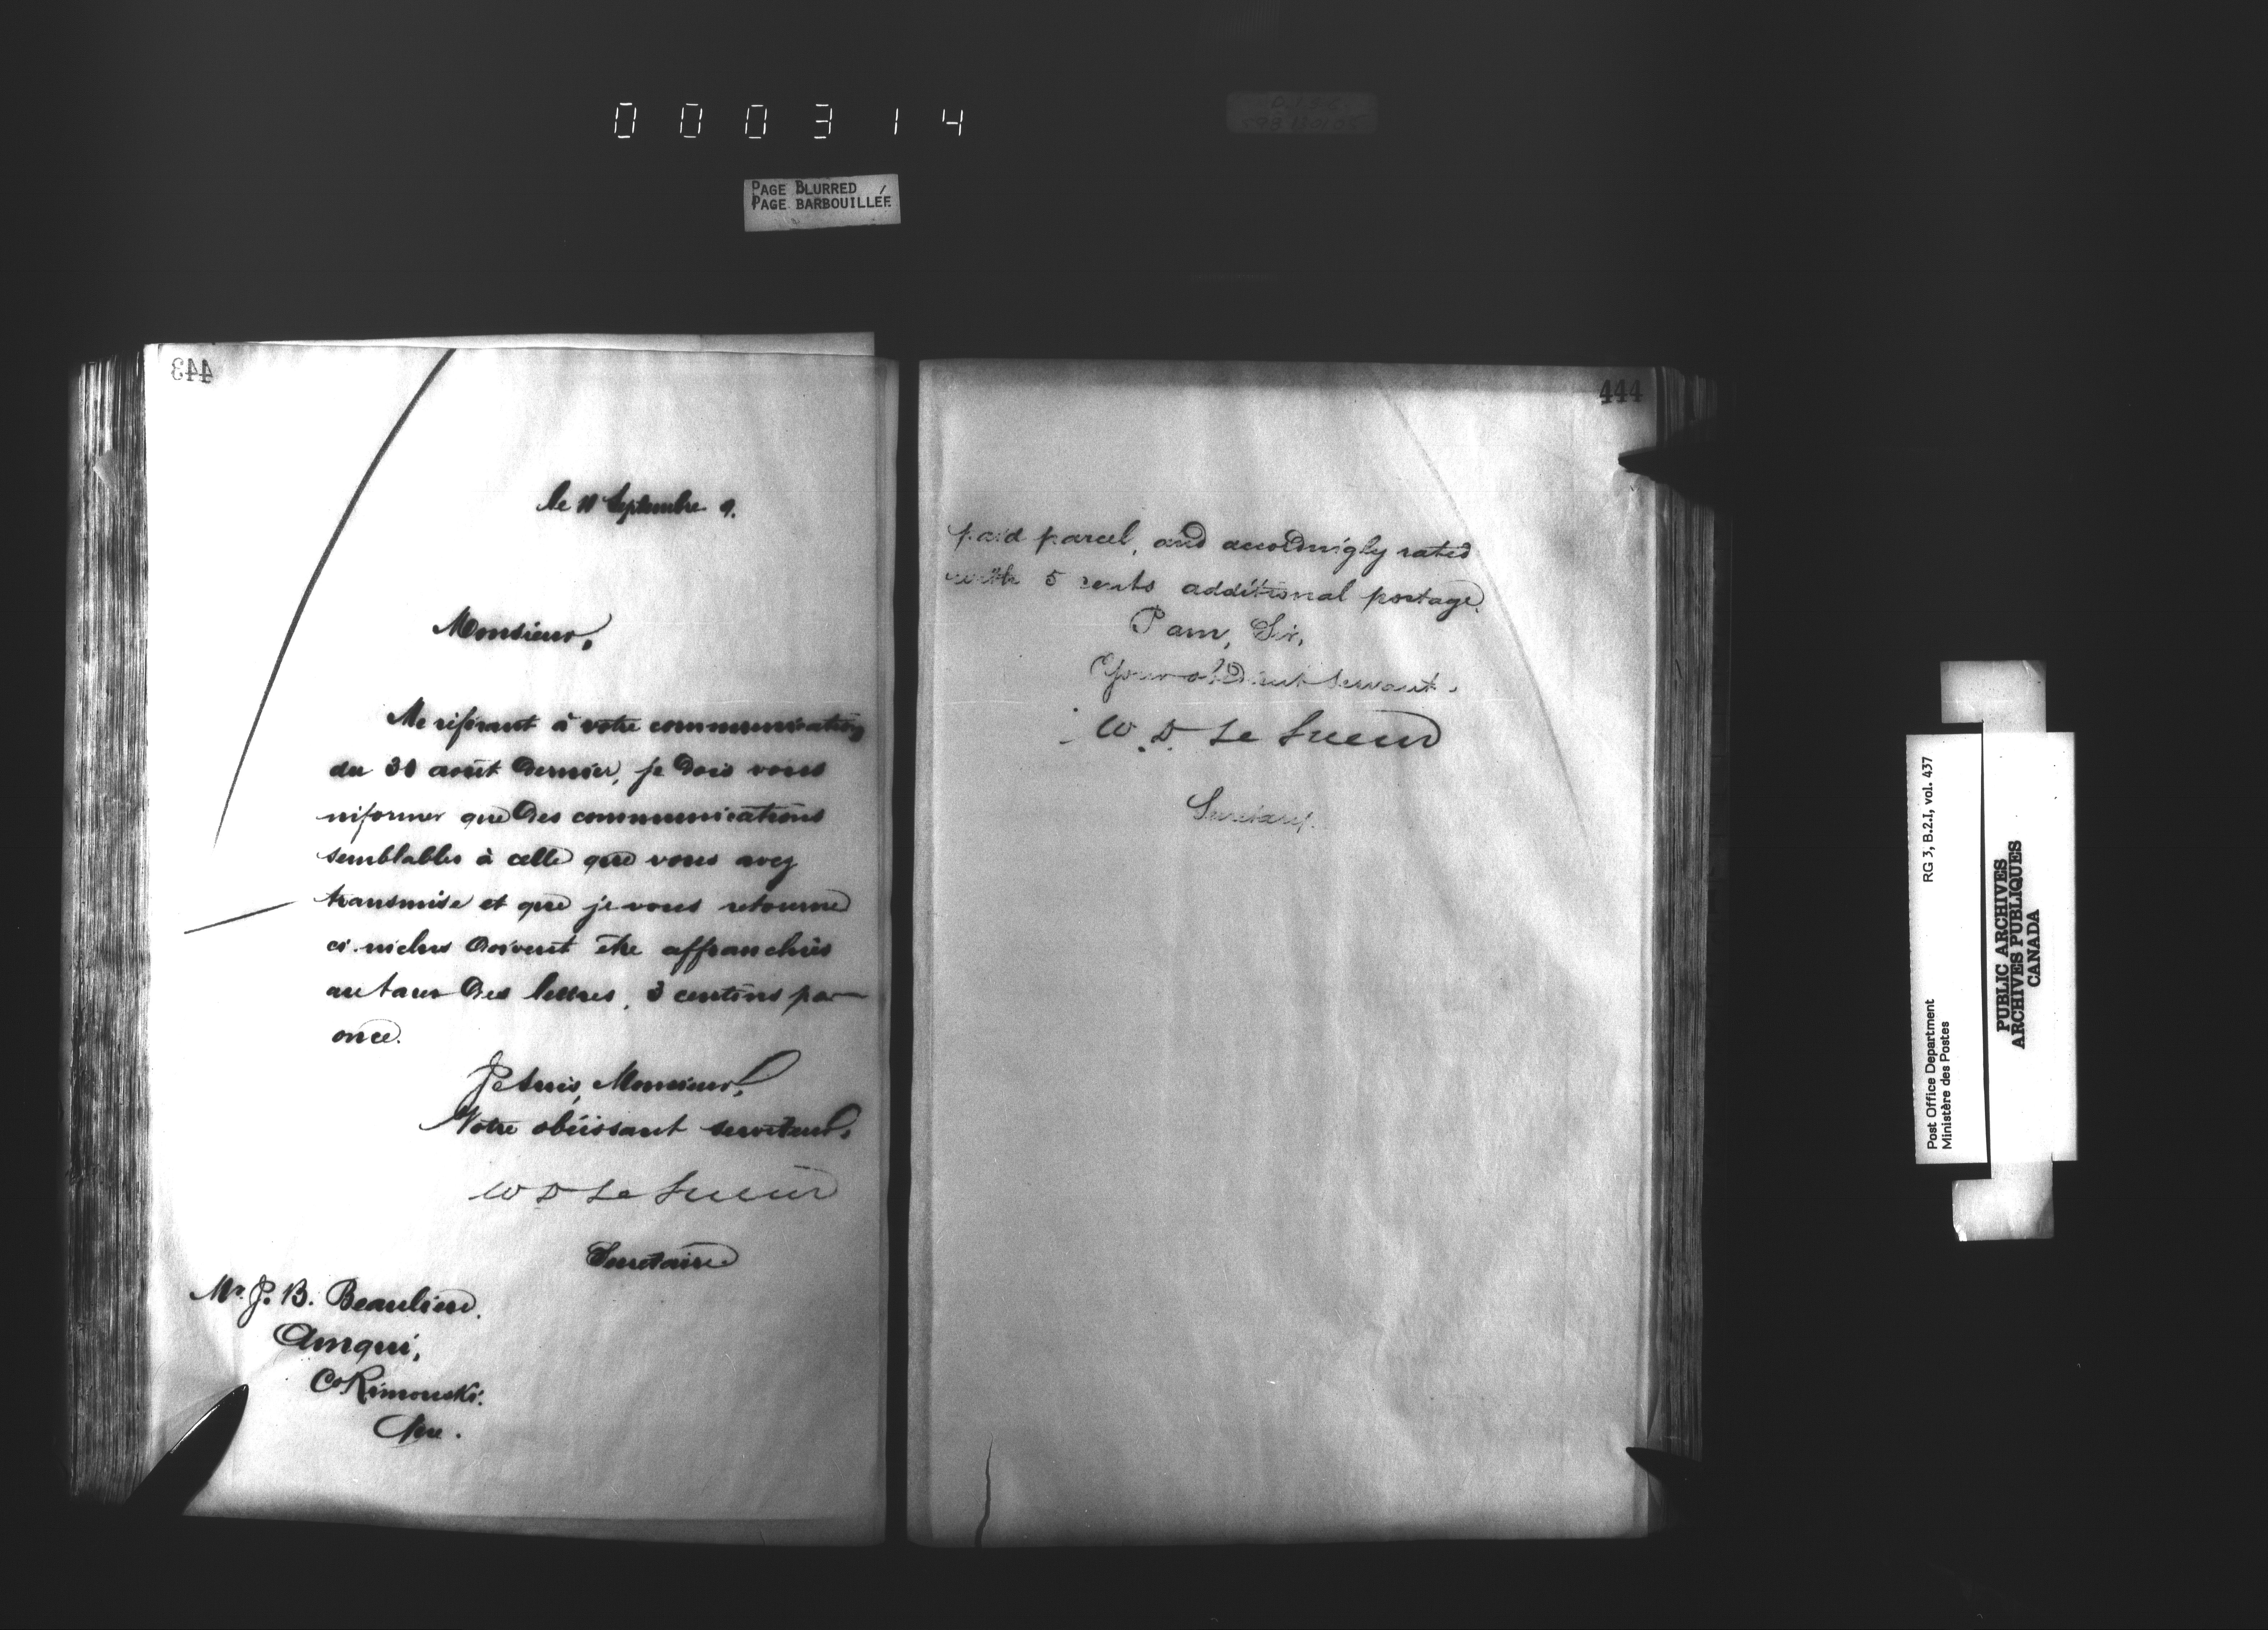 000314
PAGE BLURRED
PAGE BARBOUILLÉE
443
le Septembre 9.
Monsieur,
Me référant à votre communication
du août dernier, je dois vous
informer que des communications
semblables à celle que vous avez
transmise et que je vous retourne
ci-inclus doivent être affranchies
au taux des lettres, 3 centins par
once.
Je suis, Monsieur,
Votre obéissant serviteur,
W D Le Sueur
Secretaire
Mr. J. B. Beaulieu.
Amqui,
Co Rimouski.
Que.
444
paid parcel, and accordingly rated
with 5 cents additional postage.
I am, Sir,
Your obedient servant.
W. D. Le Sueur
Secretary.
Post Office Department RG 3, B.2.I, vol. 437
Ministère des Postes
PUBLIC ARCHIVES
ARCHIVES PUBLIQUES
CANADA